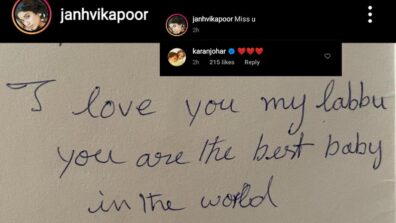 janhvikapoor
janhvikapoor Miss u
2h
karanjohar ❤❤❤
2h 215 likes Reply
I love you my labbu
you are the best baby
in the world